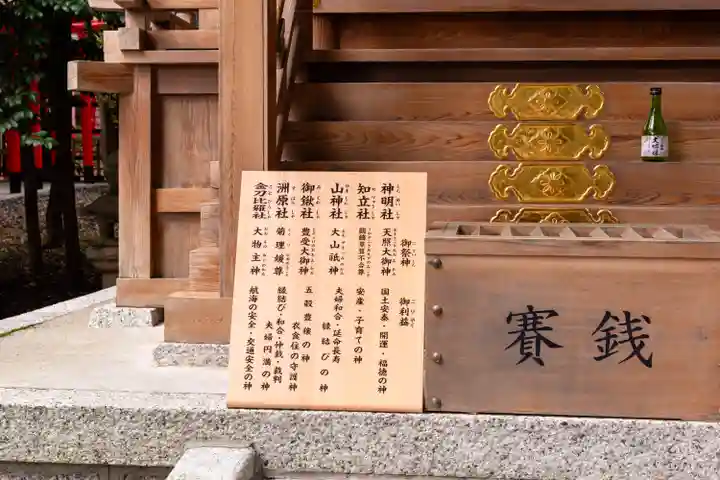 御祭神
御利益
神明社
天照大御神
国土安泰・開運・福徳の神
知立社
安産・子育ての神
山神社
大山祇神
夫婦和合・延命長寿
縁結びの神
御鍬社
豊受大御神
五穀豊穣の神
衣食住の守護神
洲原社
菊理媛尊
縁結び・和合・神裁・裁判
夫婦円満の神
金刀比羅社
大物主神
航海の安全・交通安全の神
賽銭